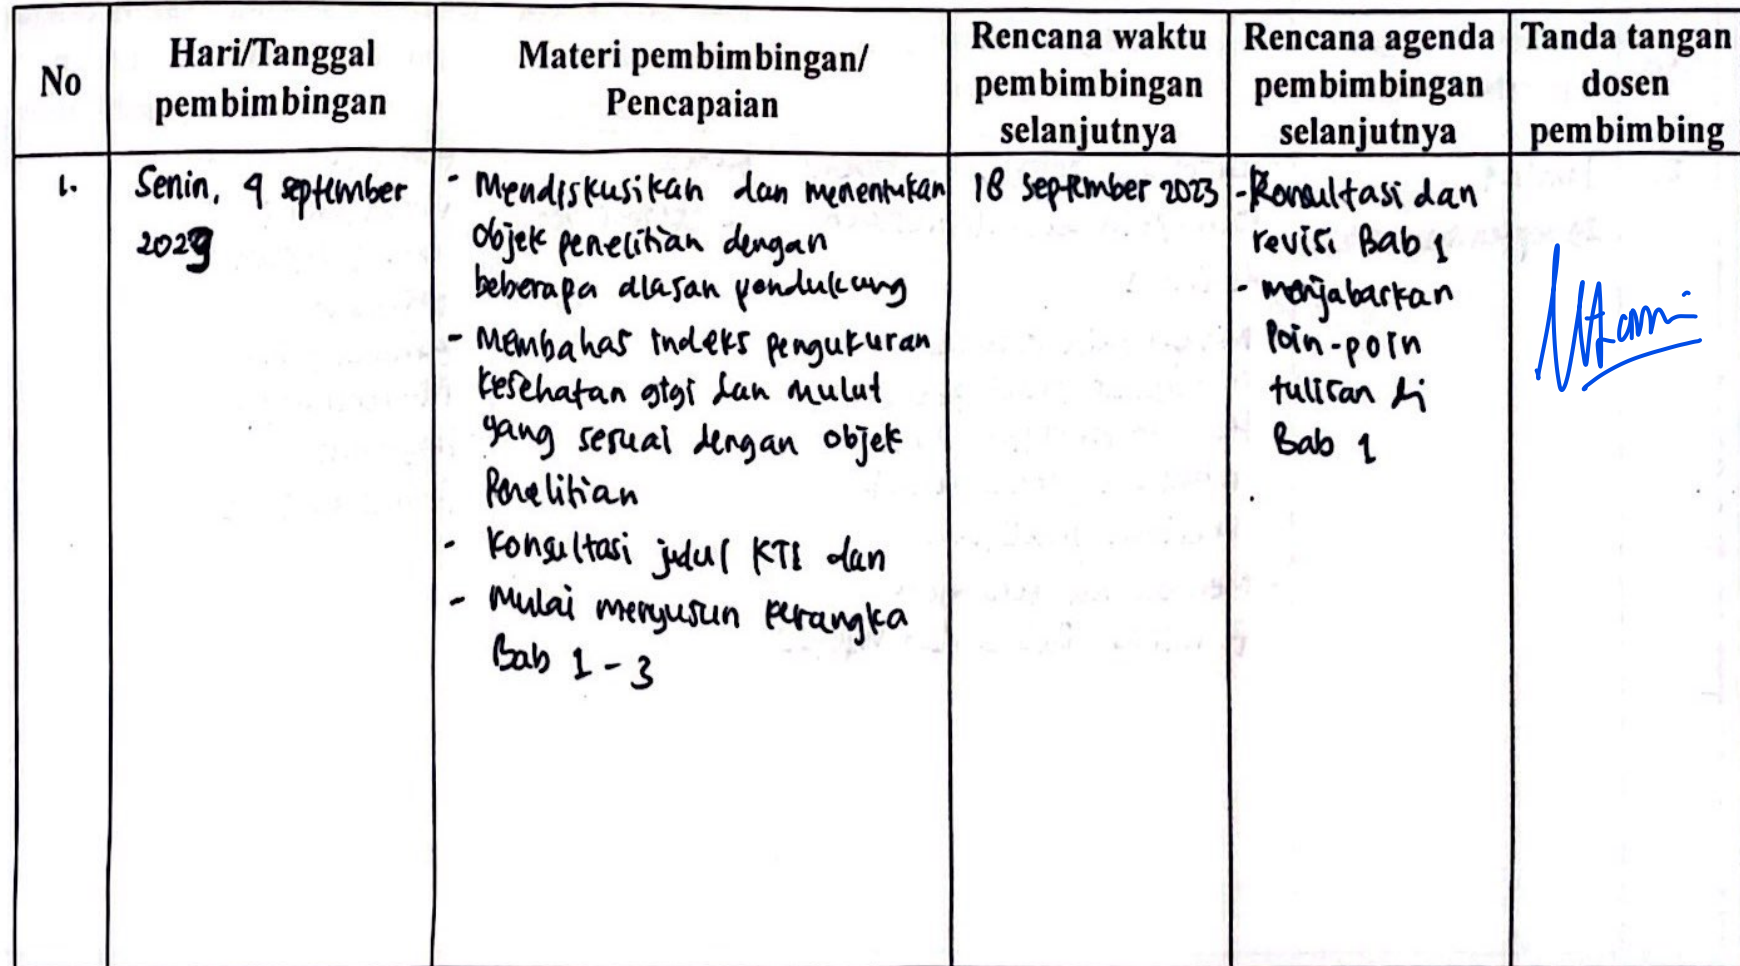 No
Hari/Tanggal
pembimbingan
Materi pembimbingan/
Pencapaian
Rencana waktu
pembimbingan
selanjutnya
Rencana agenda
pembimbingan
selanjutnya
Tanda tangan
dosen
pembimbing
1.
Senin, 4 september
2023
- Mendiskusikan dan menentukan
objek penelitian dengan
beberapa alasan pendukung
- Membahas indeks pengukuran
kesehatan gigi dan mulut
yang sesuai dengan objek
Penelitian
- Konsultasi judul KTI dan
- Mulai menyusun kerangka
Bab 1 - 3
18 September 2023
- Konsultasi dan
revisi Bab 1
- menjabarkan
Poin-poin
tulisan di
Bab 1